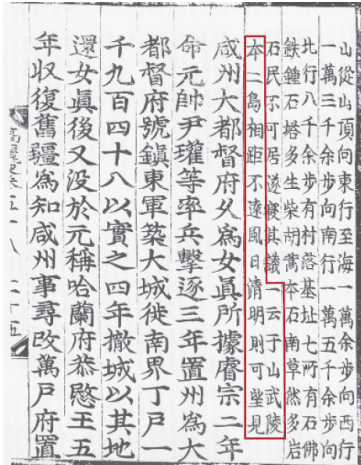 山從山頂向東行至海一萬余步向西行
一萬三千余步向南行一萬五千余步向
北行八千余步有村落基址七所有石佛
鉄鍾石塔多生柴胡蒿本石南草然多岩
石民不可居遂寢其議一云于山武陵
本二島相距不遠風日清明則可望見
咸州大都督府久爲女眞所據睿宗二年
命元帥尹瓘等率兵擊逐三年置州爲大
都督府號鎭東軍築大城徙南界丁戶一
千九百四十八以實之四年撤城以其地
還女眞後又沒於元稱哈蘭府恭愍王五
年収復舊疆爲知咸州事尋改萬戶府置
高麗史卷五十八 二十五